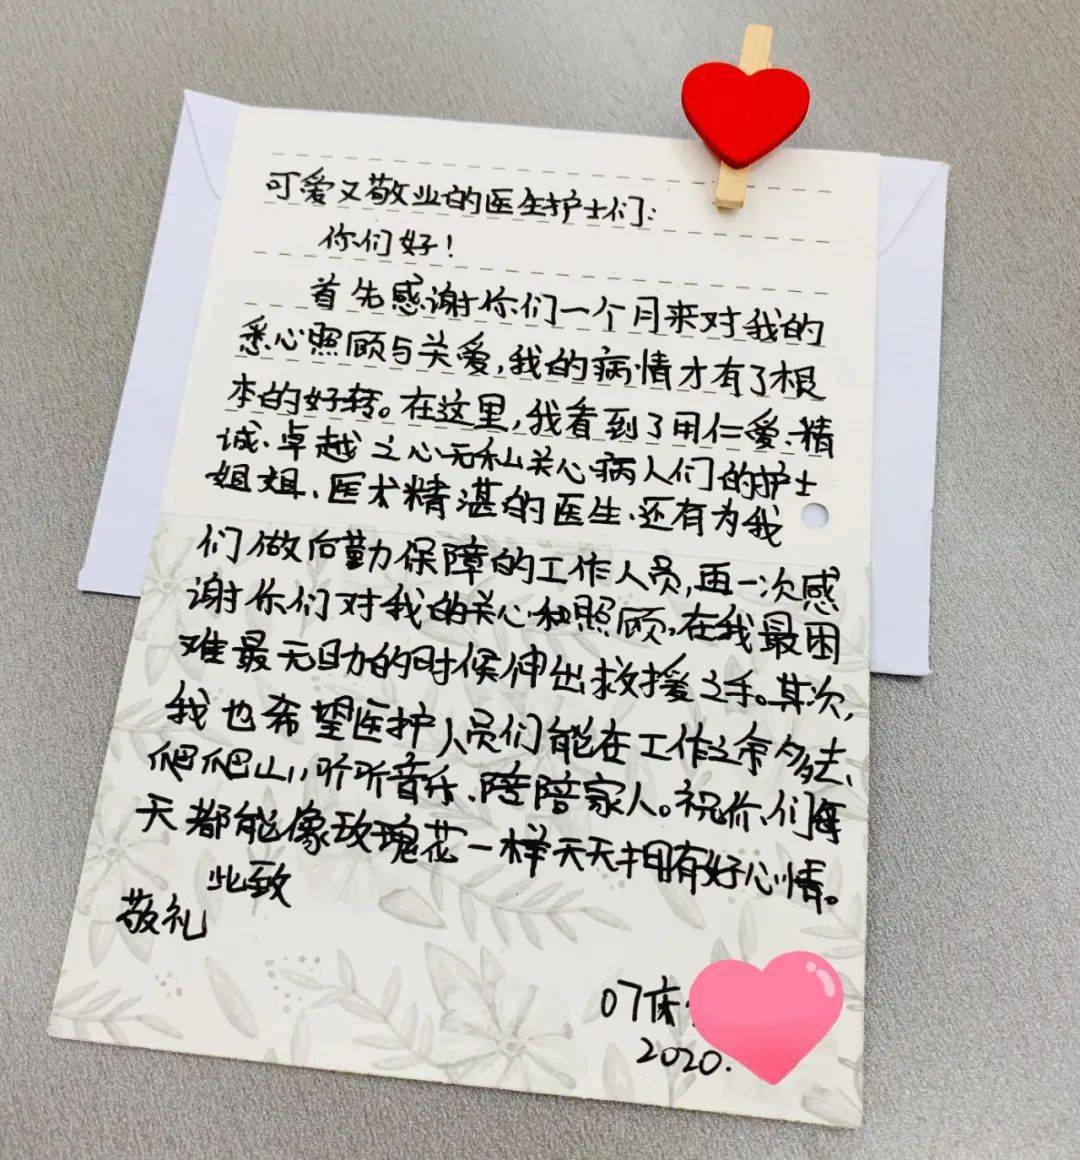 可爱又敬业的医生护士们：
你们好！
首先感谢你们一个月来对我的
悉心照顾与关爱，我的病情才有了根
本的好转。在这里，我看到了用仁爱、精
诚、卓越之心无私关心病人们的护士
姐姐、医术精湛的医生、还有为我
们做后勤保障的工作人员，再一次感
谢你们对我的关心和照顾，在我最困
难最无助的时候伸出救援之手。其次，
我也希望医护人员们能在工作之余多去
爬爬山，听听音乐、陪陪家人。祝你们每
天都能像玫瑰花一样天天拥有好心情。
此致
敬礼
07床
2020.